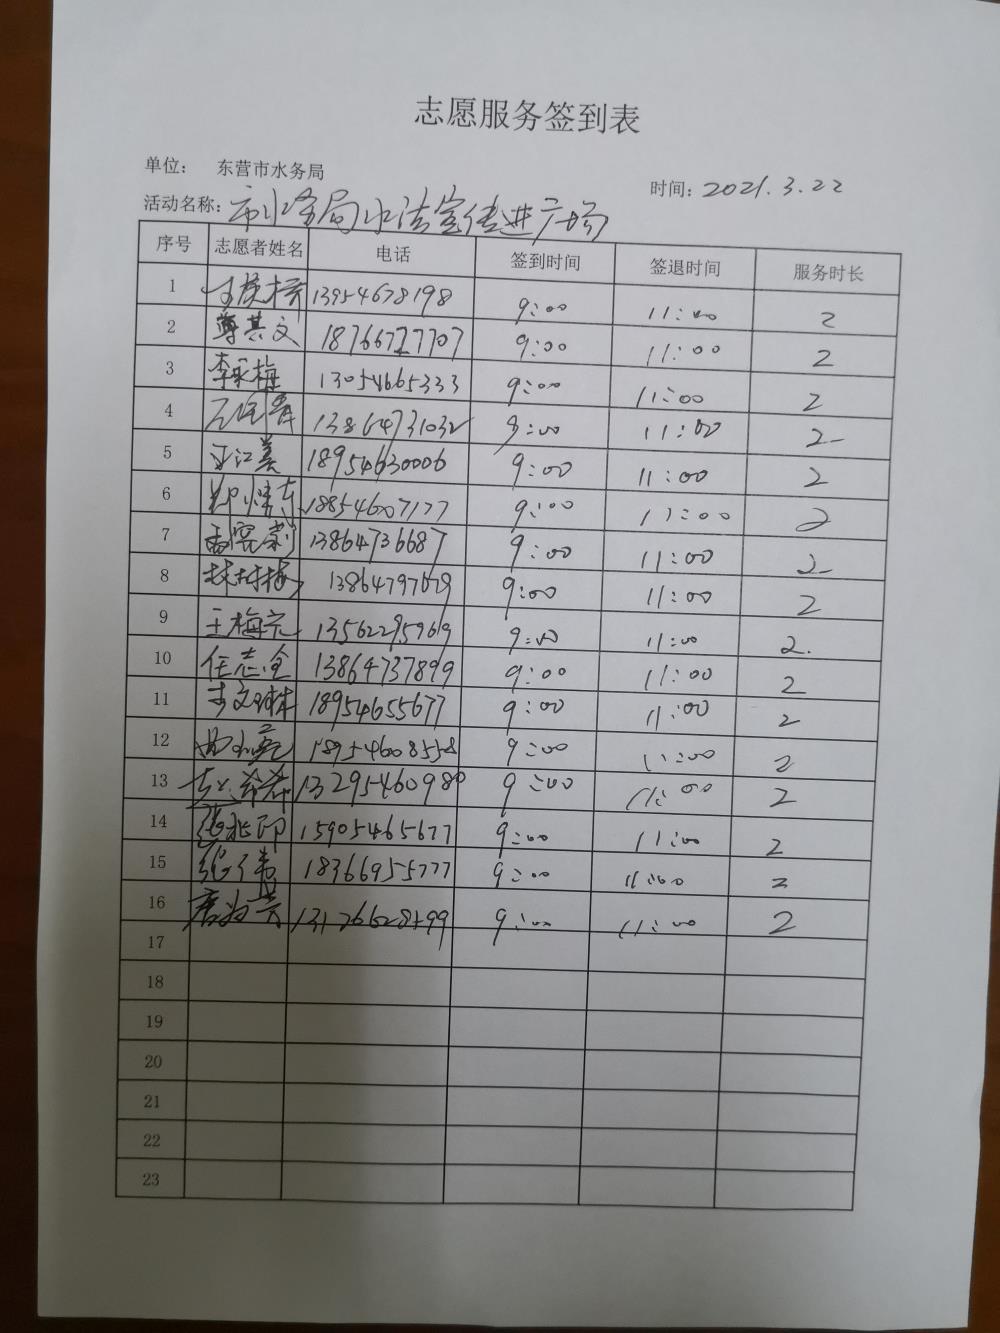 志愿服务签到表
单位： 东营市水务局
时间：2021.3.22
活动名称：市水务局水法宣传进广场
序号 志愿者姓名 电话 签到时间 签退时间 服务时长
1 13954678198 9:00 11:00 2
2 18766727707 9:00 11:00 2
3 李采梅 13054665333 9:00 11:00 2
4 13864731032 9:00 11:00 2
5 18954630006 9:00 11:00 2
6 18854607177 9:00 11:00 2
7 13864736687 9:00 11:00 2
8 林树梅 9:00 11:00 2
9 王梅 9:00 11:00 2.
10 任志全 13864737899 9:00 11:00 2
11 18954655677 9:00 11:00 2
12 18954608558 9:00 11:00 2
13 13295460980 9:00 11:00 2
14 张兆印 15905465677 9:00 11:00 2
15 张伟 18366955777 9:00 11:00 2
16 9:00 11:00 2
17
18
19
20
21
22
23